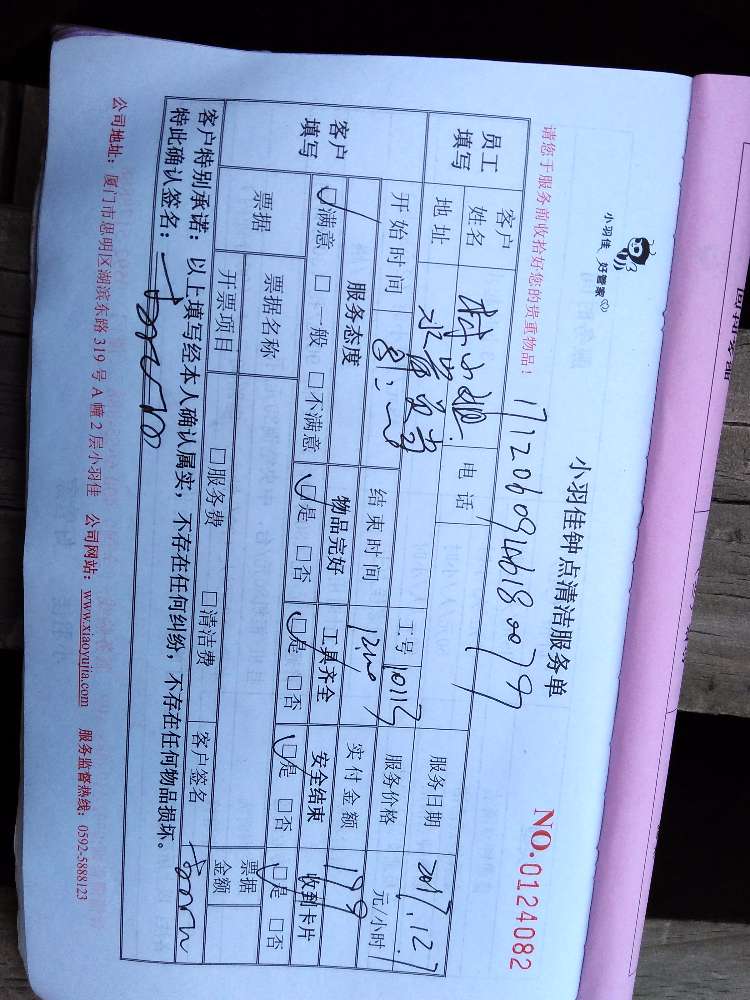 小羽佳 好管家
小羽佳钟点清洁服务单
请您于服务前收拾好您的贵重物品！
NO.0124082
员工填写
客户姓名 林小姐 电话 工号 10113 服务日期 2017.12.7
地址 服务价格 元/小时
开始时间 结束时间 12:00 实付金额 199
客户填写
服务态度 物品完好 工具齐全 安全结束 收到卡片
☑满意 □一般 □不满意 ☑是 □否 ☑是 □否 ☑是 □否 ☑是 □否
票据 票据名称 □服务费 □清洁费 票据金额
开票项目 客户签名
客户特别承诺：以上填写经本人确认属实，不存在任何纠纷，不存在任何物品损坏。
特此确认签名：
公司地址：厦门市思明区湖滨东路 319 号 A 幢 2 层小羽佳 公司网站：www.xiaoyujia.com 服务监督热线：0592-5888123